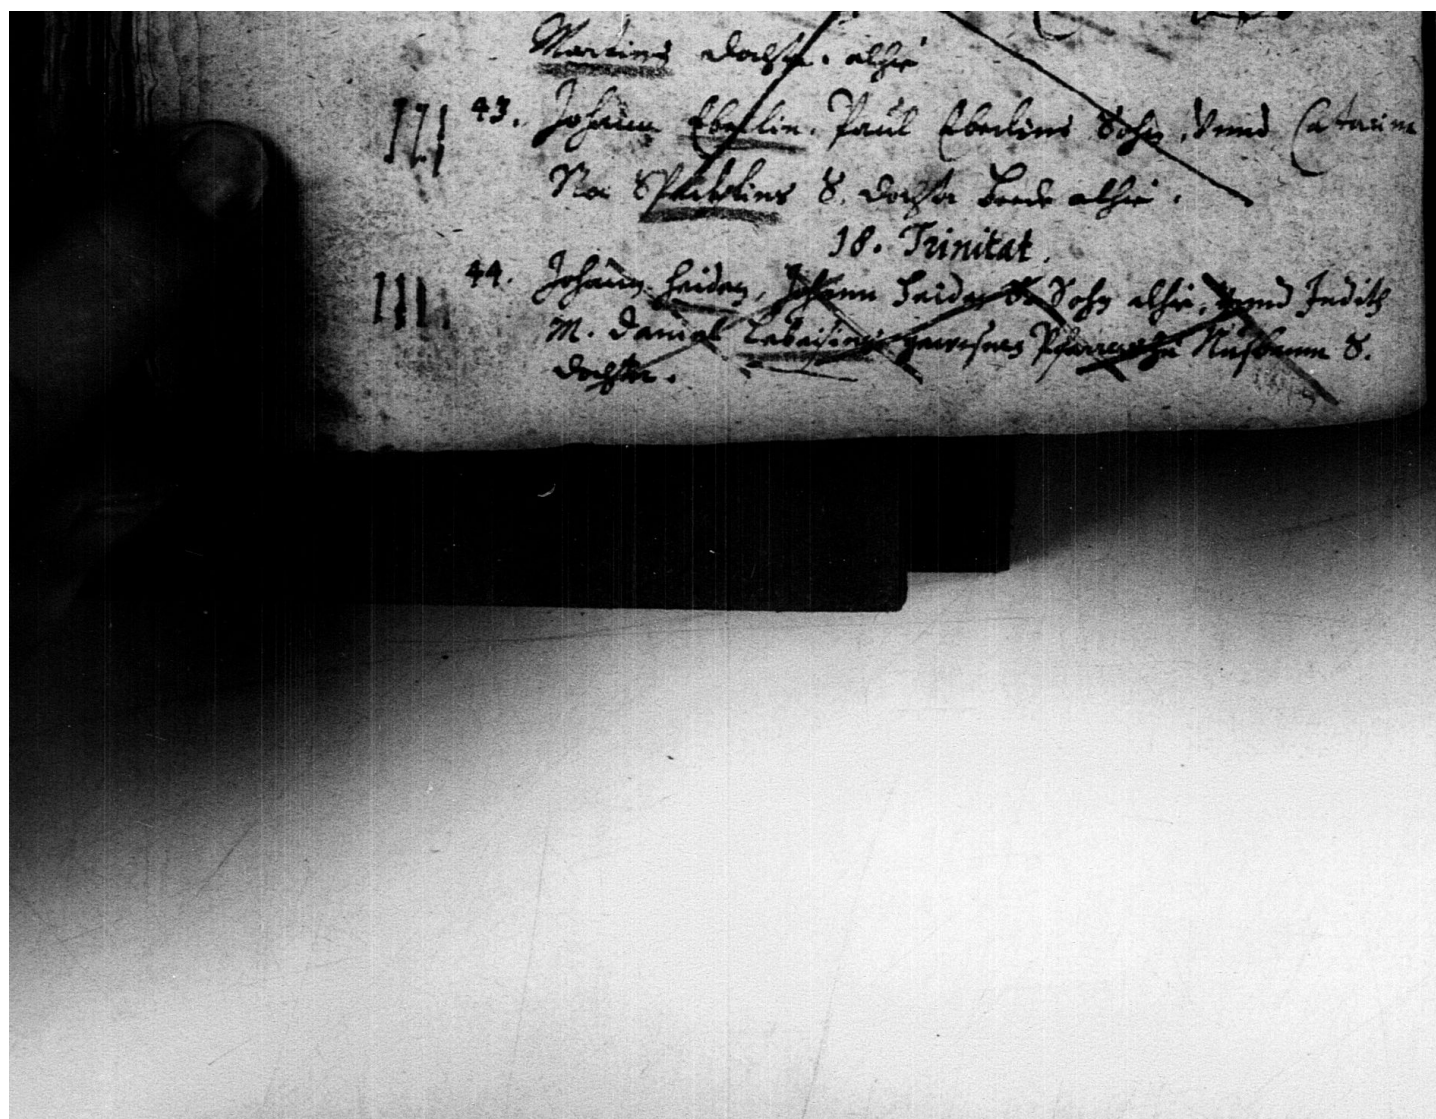 Martins dochter. alhie
III 43. Johann Eberlin. Paul Eberlins Sohn, Vnnd Catarina
S. dochter beede alhie.
18. Trinitat.
III 44. Johann Heiden, Johann Heiden S. Sohn alhie, Vnnd Judith
M. Daniel gewesnen Pfarrers zu Nusbaum S.
dochter.